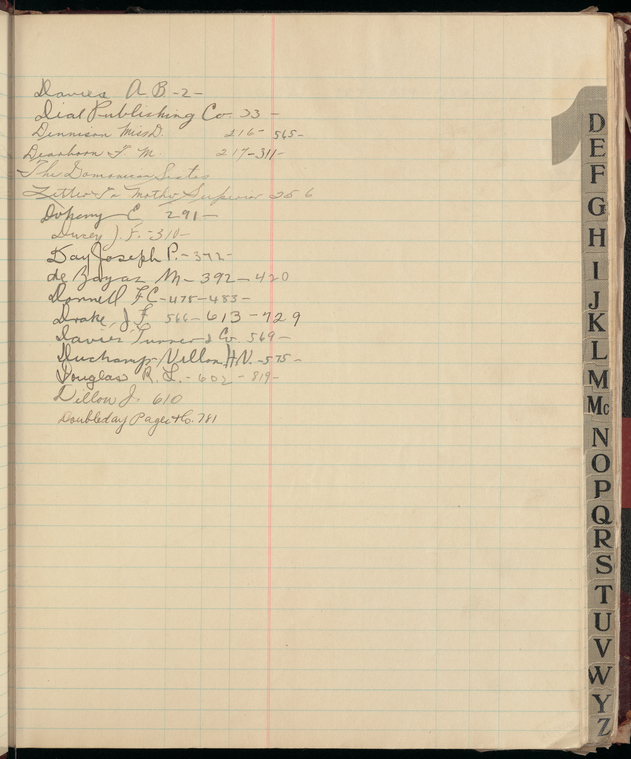 Davies A. B. -2-
Dial Publishing Co. 33 -
Dennison Miss D. 216- 565-
Dearborn F. M. 217-311-
The Domonican Sister
Letter to Mother Superior 256
Dopeny C 291-
Durey J. F. -310-
Day Joseph P. -372-
de Zayas M- 392-420
Donnell F C-475-483-
Drake, J. F. 566-613-729
Davies Turner & Co. 569-
Duchamp, Villon, H.V. -575-
Douglas R. L. -602- 819-
Dillow J. 610
Doubleday Page & Co. 781
D
E
F
G
H
I
J
K
L
M
Mc
N
O
P
Q
R
S
T
U
V
W
Y
Z